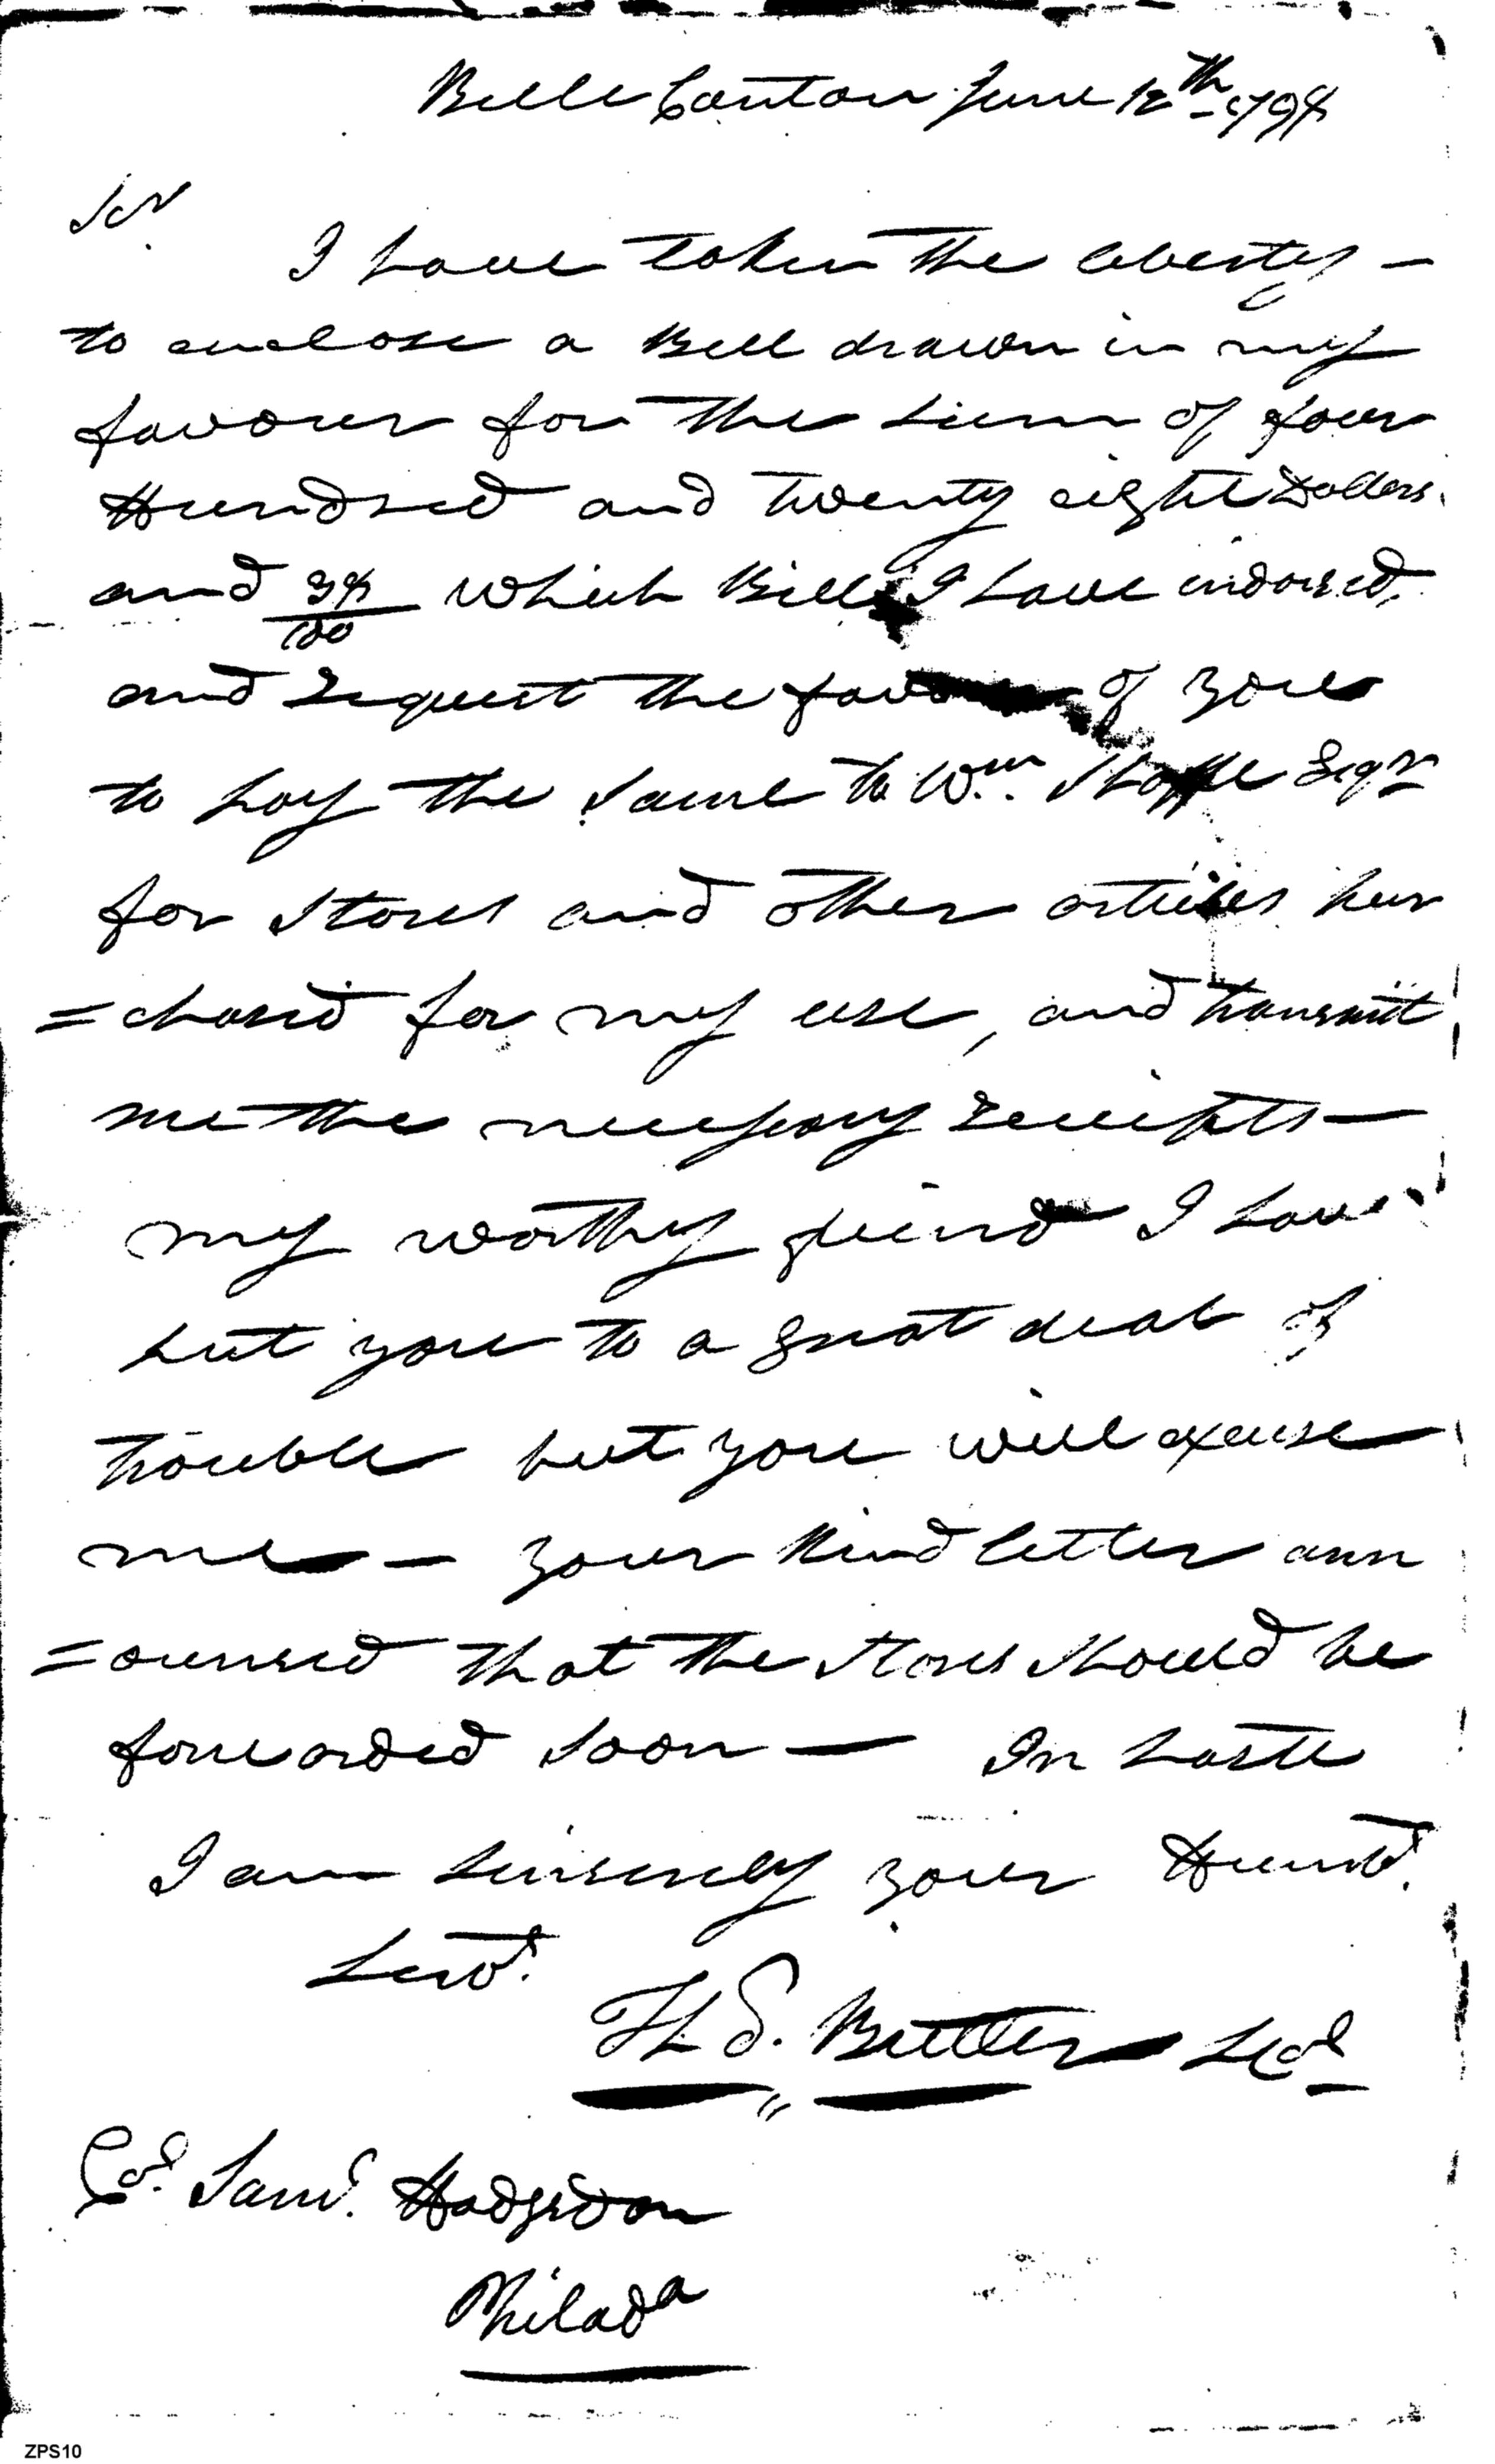 Belle Canton June 12th 1798
Sir
I have taken the liberty —
to enclose a Bill drawn in my
favour for the sum of four
Hundred and twenty eight Dollars
and 38/100 which Bill I have endorsed,
and request the favour of you
to pay the same to Wm. Esqr
for Stores and other articles pur
=chased for my use, and transmit
me the necessary receipts —
my worthy friend I have
put you to a great deal of
trouble but you will excuse
me — your kind letter ann
=ounced that the Stores should be
forwarded soon — In haste
I am sincerely your Humbl.
Servt.
Butler
Col. Saml. Hodgsdon
Philada
ZPS10